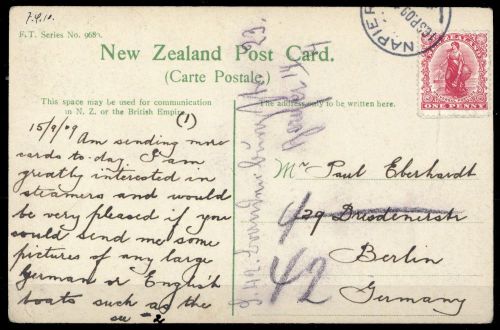 7.9.10.
F.T. Series No. 968
New Zealand Post Card.
(Carte Postale.)
This space may be used for communication
in N. Z. or the British Empire
The address only to be written here.
(1)
15/9/09 Am sending more
cards to-day. I am
greatly interested in
steamers and would
be very pleased if you
could send me some
pictures of any large
German or English
boats such as the
see - 2
NAPIER
SP 09
ONE PENNY
Mr Paul Eberhardt
429 Dresdenerstr
Berlin
Germany
42
23.